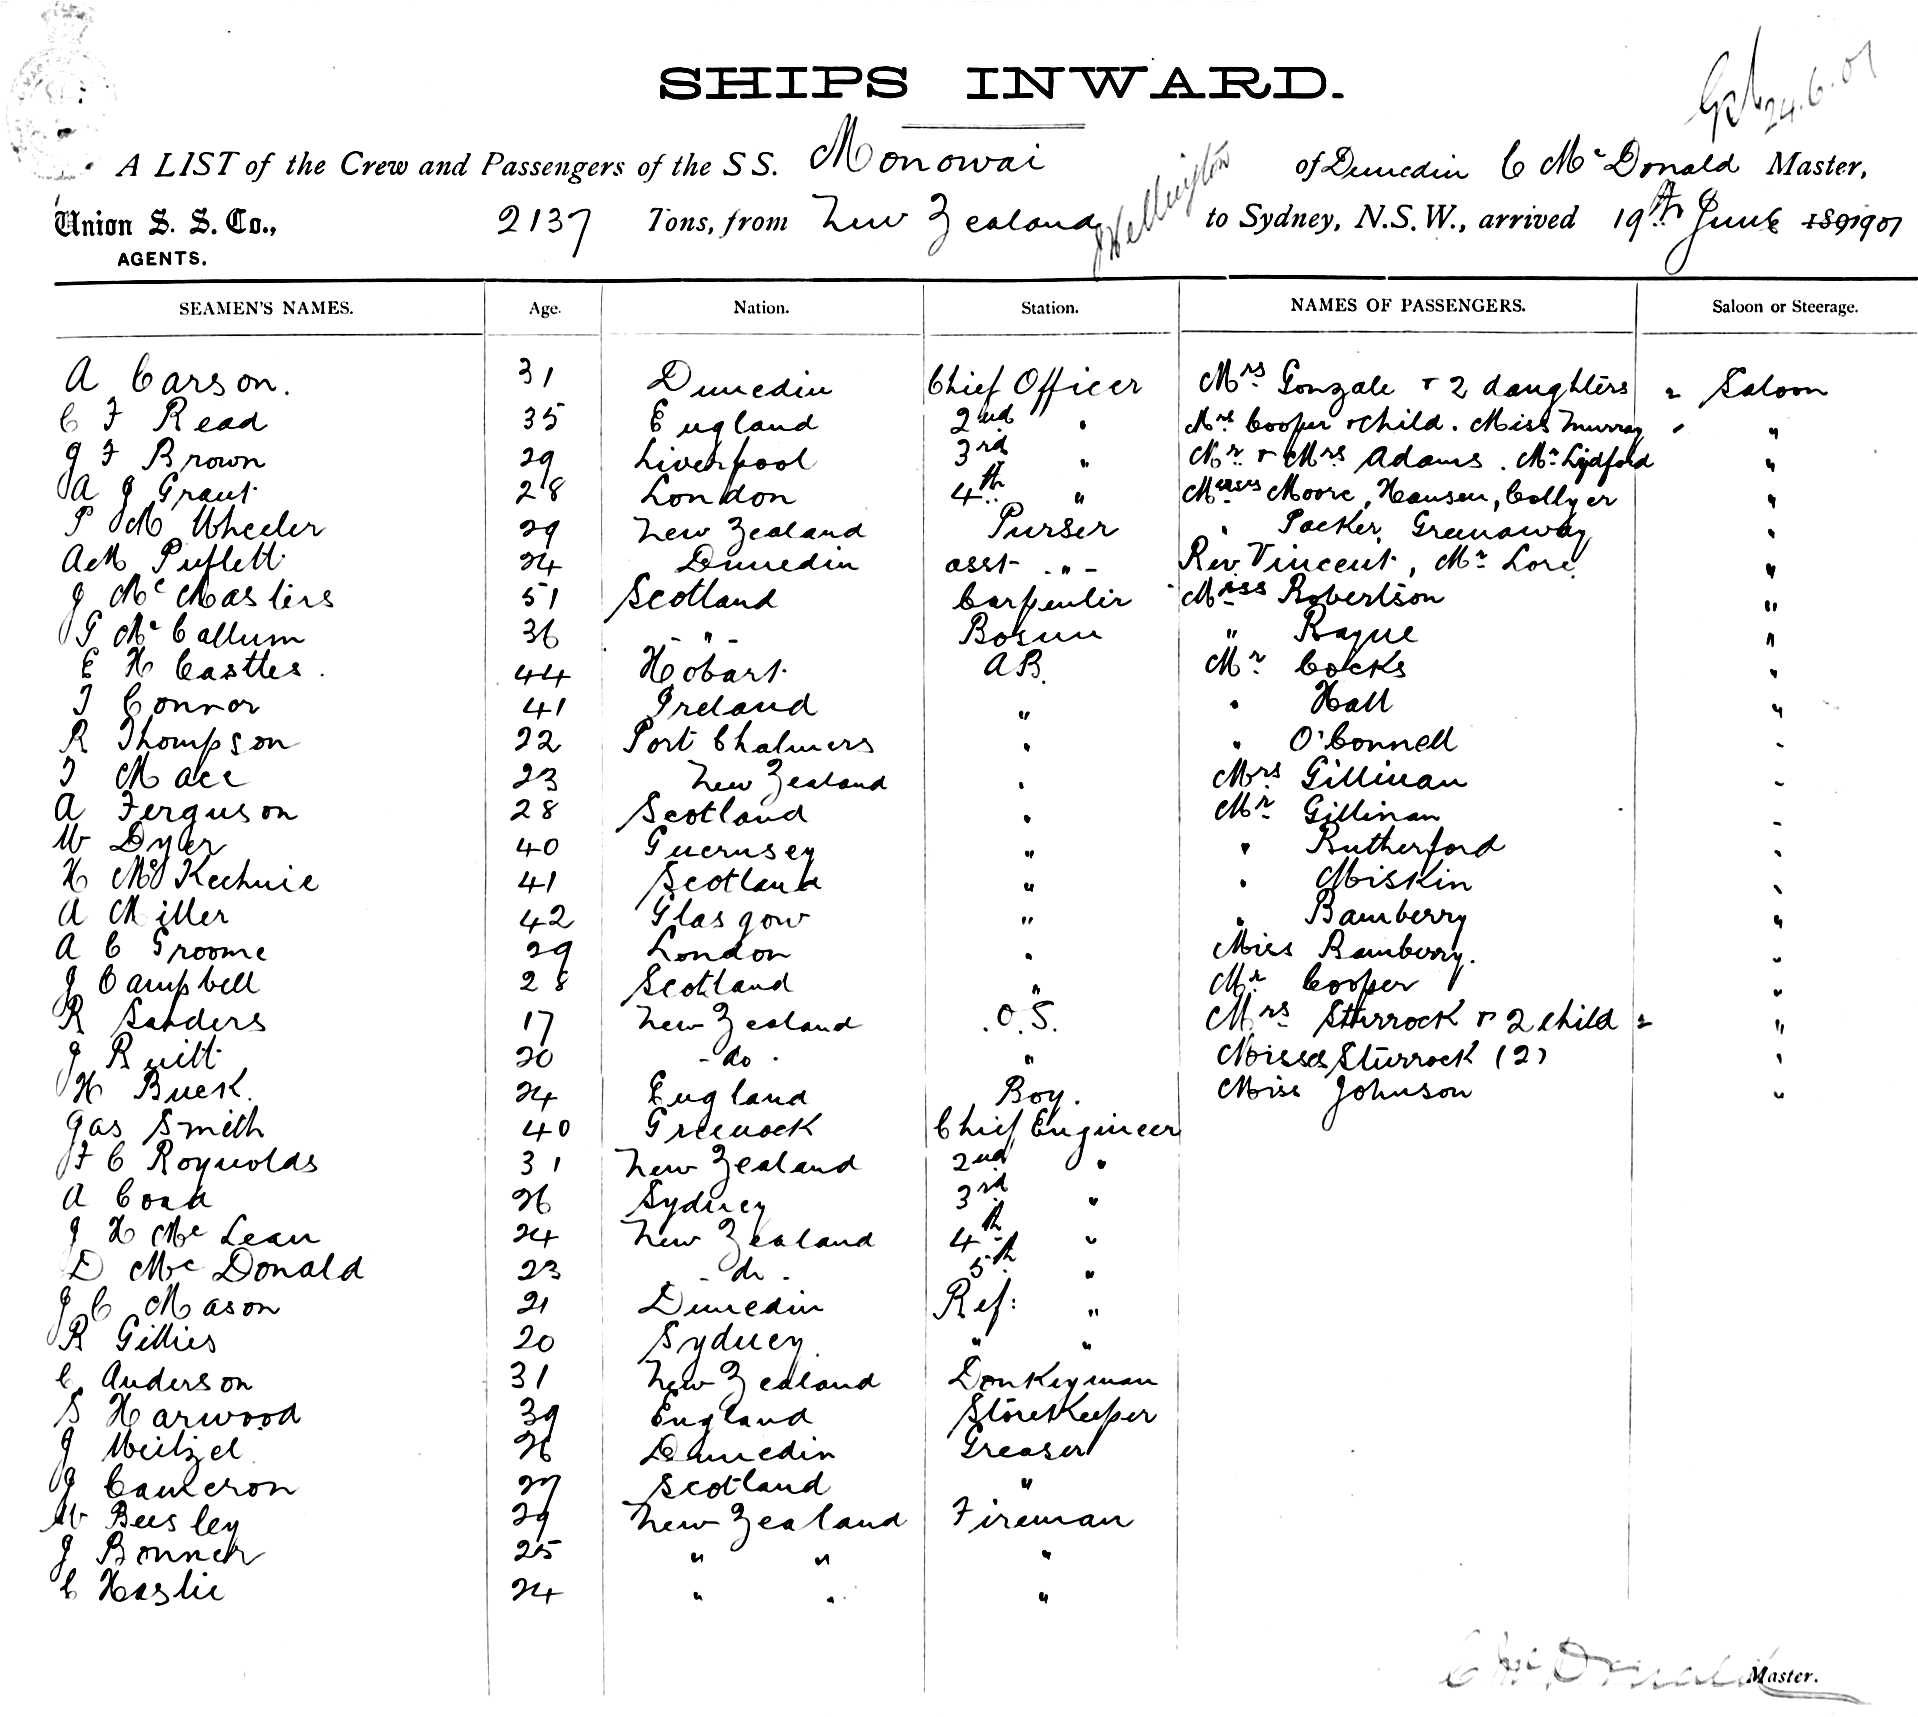 SHIPS INWARD.
24.6.01
A LIST of the Crew and Passengers of the S S. Monowai of Dunedin C Mc Donald Master,
Union S. S. Co., 2137 Tons, from New Zealand Wellington to Sydney, N.S.W., arrived 19th June 1891901
AGENTS.
SEAMEN'S NAMES. Age. Nation. Station. NAMES OF PASSENGERS. Saloon or Steerage.
A Carson. 31 Dunedin Chief Officer Mrs Gonzale & 2 daughters " Saloon
C F Read 35 England 2nd " Mrs Cooper & Child. Miss Murray " "
J F Brown 29 Liverpool 3rd " Mr & Mrs Adams. Mr Lydford "
A J Grant 28 London 4th " Messrs Moore, Hansen, Collyer "
P M Wheeler 29 New Zealand Purser " Packer, Greenaway "
A M Puflett 24 Dunedin asst - " - Rev. Vincent, Mr Lore "
J Mc Masters 51 Scotland Carpenter Miss Robertson "
P Mc Callum 36 - " - Bosun " Rague "
E H Castles. 44 Hobart A B. Mr Cocks "
J Connor 41 Ireland " " Hall "
R Thompson 22 Port Chalmers " " O'Connell "
J Mace 23 New Zealand " Mrs Gillinan "
A Ferguson 28 Scotland " Mr Gillinan "
W Dyer 40 Guernsey " " Rutherford "
H Mc Kechnie 41 Scotland " " Miskin "
A Miller 42 Glasgow " " Bamberry "
A C Groome 29 London " Miss Bamberry. "
J Campbell 28 Scotland " Mr Cooper "
R Sanders 17 New Zealand .O.S. Mrs Sturrock & 2 child " "
J Ruitt 20 - do - " Misses Sturrock (2) "
H Buck. 24 England Boy. Miss Johnson "
Jas Smith 40 Greenock Chief Engineer
F C Roynolds 31 New Zealand 2nd "
A Coad 26 Sydney 3rd "
J H Mc Lean 24 New Zealand 4th "
D Mc Donald 23 - do - 5th "
J C Mason 21 Dunedin Ref: "
R Gillies 20 Sydney. " "
C Anderson 31 New Zealand Donkeyman
S Harwood 39 England Storekeeper
J Weitzel 26 Dunedin Greaser
J Cameron 27 Scotland "
W Beesley 29 New Zealand Fireman
J Bonner 25 " " "
C Haslie 24 " " "
C Mc Donald Master.